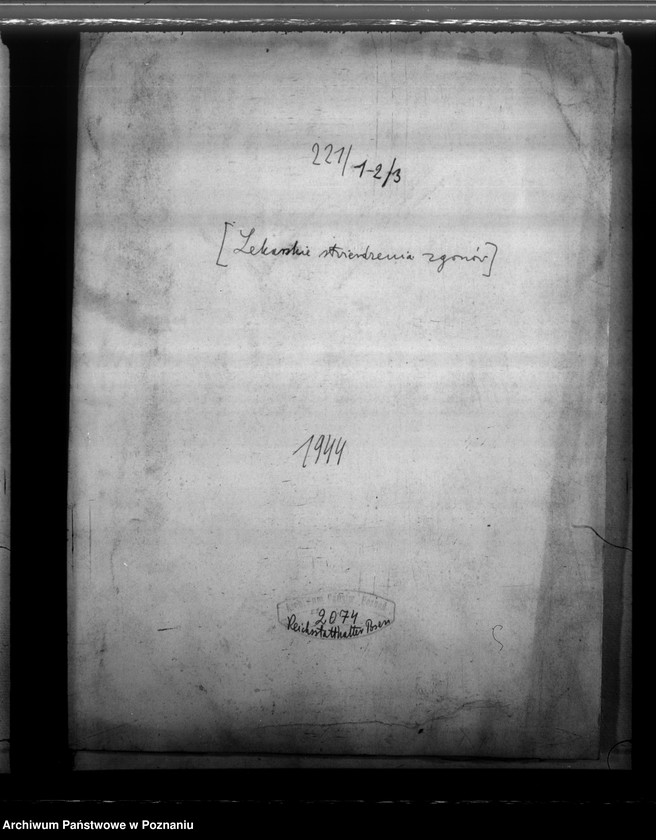 221/1-2/3
[Lekarskie stwierdzenia zgonów]
1944
2074
Reichsstatthalter Posen
Archiwum Państwowe w Poznaniu